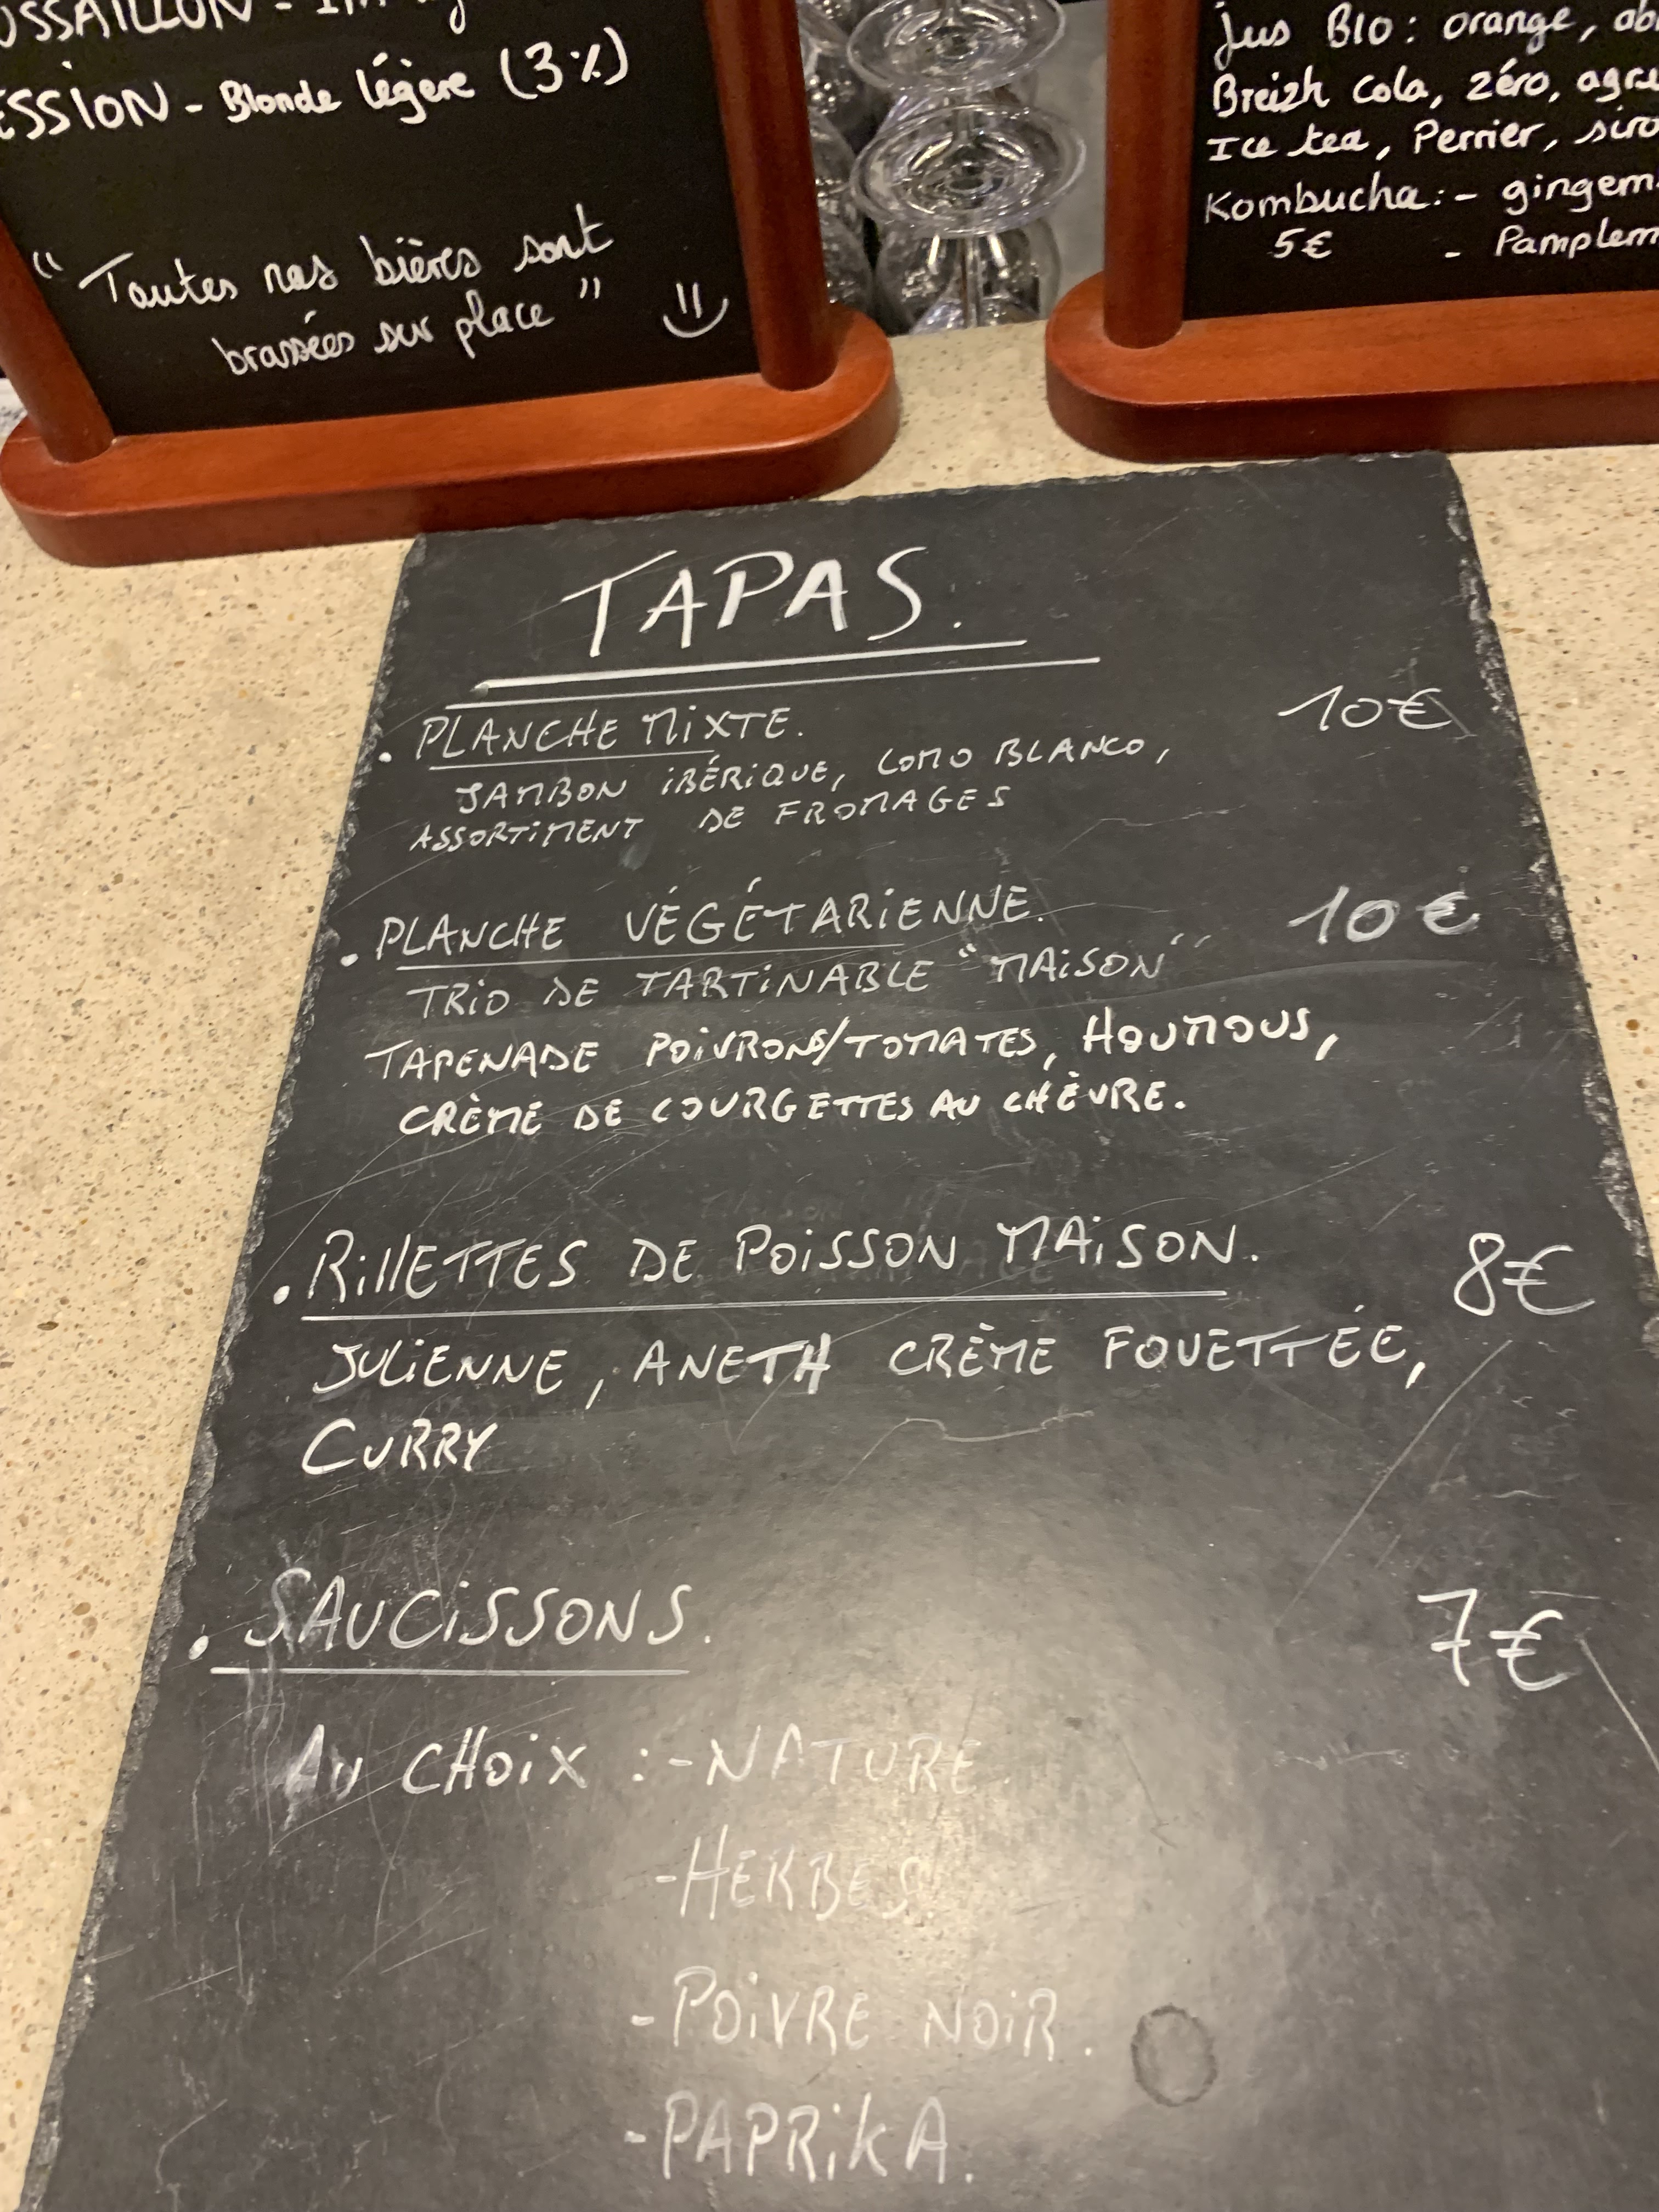 ESSION - Blonde légère (3%)
"Toutes nos bières sont
brassées sur place"
Jus BIO : orange,
Breizh Cola, zéro,
Ice tea, Perrier,
Kombucha : -
5€ -
TAPAS.
. PLANCHE MIXTE. 10€
JAMBON IBÉRIQUE, LOMO BLANCO,
ASSORTIMENT DE FROMAGES
. PLANCHE VÉGÉTARIENNE. 10€
TRIO DE TARTINABLE "MAISON"
TAPENADE POIVRONS/TOMATES, HOUMOUS,
CRÈME DE COURGETTES AU CHÈVRE.
. RillETTES DE POISSON MAISON. 8€
JULIENNE, ANETH CRÈME FOUETTÉE,
CURRY
. SAUCISSONS. 7€
AU CHOIX : - NATURE.
- HERBES.
- POIVRE NOIR.
- PAPRIKA.